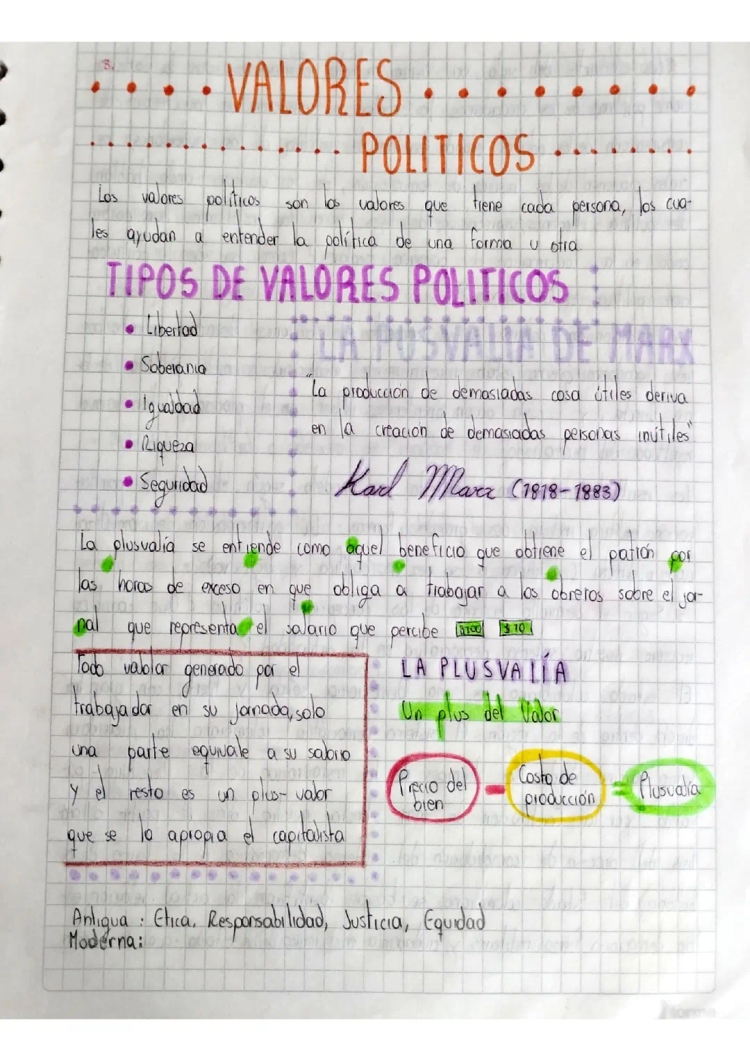 3.
VALORES
POLITICOS
Los valores políticos son los valores que tiene cada persona, los cua-
les ayudan a entender la política de una forma u otra
TIPOS DE VALORES POLITICOS
• Libertad
• Soberania
• Igualdad
• Riqueza
• Seguridad
LA PUSVALIA DE MARX
"La producción de demasiadas cosa útiles deriva
en la creacion de demasiadas personas inútiles"
Karl Marx (1818-1883)
La plusvalía se entiende como aquel beneficio que obtiene el patrón por
las horas de exceso en que obliga a trabajar a los obreros sobre el jor-
nal que representa el salario que percibe $100 $10
Todo valolor generado por el
trabajador en su jornada, solo
una parte equivale a su salario
y el resto es un plus-valor
que se lo apropia el capitalista
LA PLUSVALÍA
Un plus del Valor
Precio del bien - Costo de producción = Plusvalía
Antigua: Etica, Responsabilidad, Justicia, Equidad
Moderna: